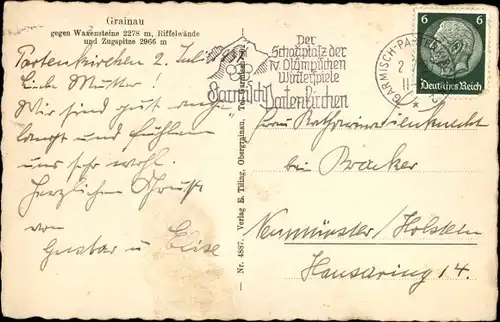 Grainau
gegen Waxensteine 2278 m, Riffelwände
und Zugspitze 2966 m
Partenkirchen 2. Juli
Liebe Mutter!
Wir sind gut ange-
langt und fühlen
uns sehr wohl.
Herzlichen Gruss
von
Gustav u. Elise
Nr. 4887. Verlag E. Tiling, Obergrainau.
Der
Schauplatz der
IV. Olympischen
Winterspiele
Garmisch Partenkirchen
GARMISCH-PA
6 6
Deutsches Reich
Frau
bei Braaker
Neumünster/Holstein
Hansaring 14.